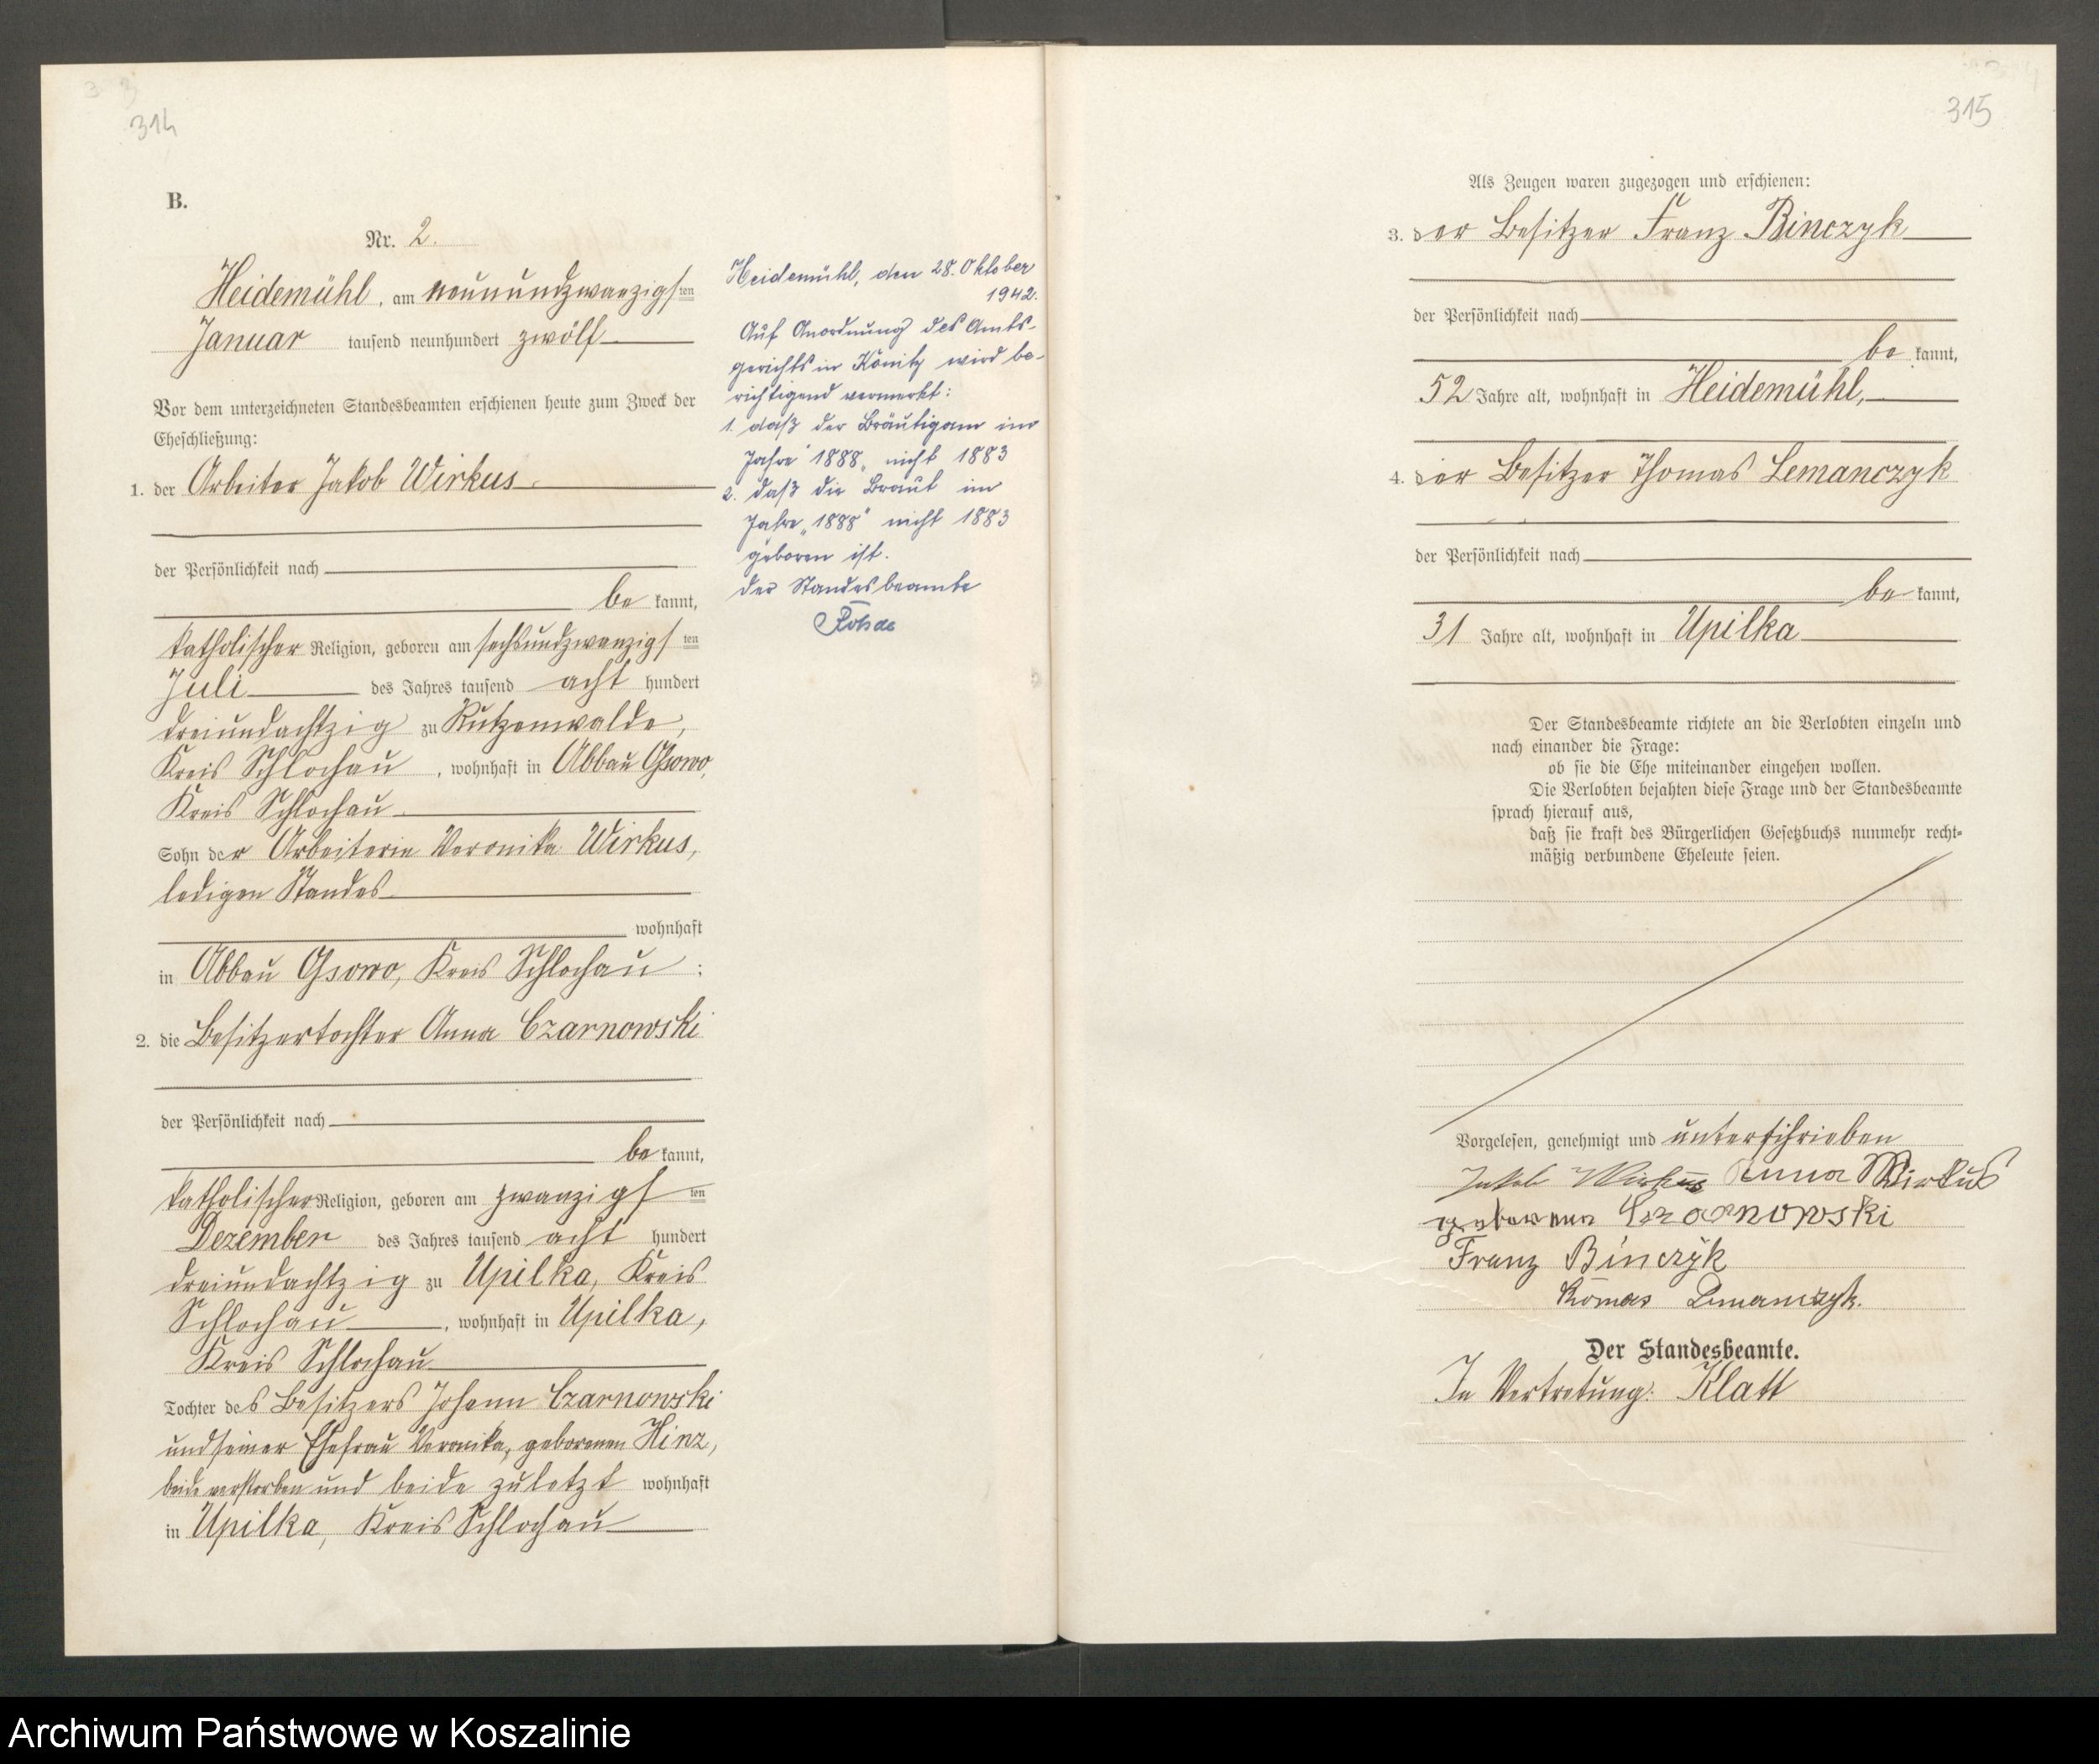 314
B.
Nr. 2.
Heidemühl, am neunundzwanzigsten
Januar tausend neunhundert zwölf
Vor dem unterzeichneten Standesbeamten erschienen heute zum Zweck der
Eheschließung:
1. der Arbeiter Jakob Wirkus
der Persönlichkeit nach
be kannt,
katholischer Religion, geboren am sechsundzwanzigsten
Juli des Jahres tausend acht hundert
dreiundachtzig zu Kutzenwalde,
Kreis Schlochau, wohnhaft in Abbau Ossowo,
Kreis Schlochau
Sohn der Arbeiterin Veronika Wirkus,
ledigen Standes
wohnhaft
in Abbau Ossowo, Kreis Schlochau;
2. die Besitzertochter Anna Czarnowski
der Persönlichkeit nach
be kannt,
katholischer Religion, geboren am zwanzigsten
Dezember des Jahres tausend acht hundert
dreiundachtzig zu Upilka, Kreis
Schlochau, wohnhaft in Upilka,
Kreis Schlochau
Tochter des Besitzers Johann Czarnowski
und seiner Ehefrau Veronika, geborenen Hinz,
beide verstorben und beide zuletzt wohnhaft
in Upilka, Kreis Schlochau
Heidemühl, den 28. Oktober
1942.
Auf Anordnung des Amts-
gerichts in Konitz wird be-
richtigend vermerkt:
1. daß der Bräutigam im
Jahre "1888" nicht 1883
2. daß die Braut im
Jahre "1888" nicht 1883
geboren ist.
der Standesbeamte
315
Als Zeugen waren zugezogen und erschienen:
3. der Besitzer Franz Binczyk
der Persönlichkeit nach
be kannt,
52 Jahre alt, wohnhaft in Heidemühl,
4. der Besitzer Thomas Lemanczyk
der Persönlichkeit nach
be kannt,
31 Jahre alt, wohnhaft in Upilka
Der Standesbeamte richtete an die Verlobten einzeln und
nach einander die Frage:
ob sie die Ehe miteinander eingehen wollen.
Die Verlobten bejahten diese Frage und der Standesbeamte
sprach hierauf aus,
daß sie kraft des Bürgerlichen Gesetzbuchs nunmehr recht-
mäßig verbundene Eheleute seien.
Vorgelesen, genehmigt und unterschrieben
Jakob Wirkus Anna Wirkus
geborenen Czarnowski
Franz Binczyk
Thomas Lemanczyk.
Der Standesbeamte.
In Vertretung: Klatt
Archiwum Państwowe w Koszalinie